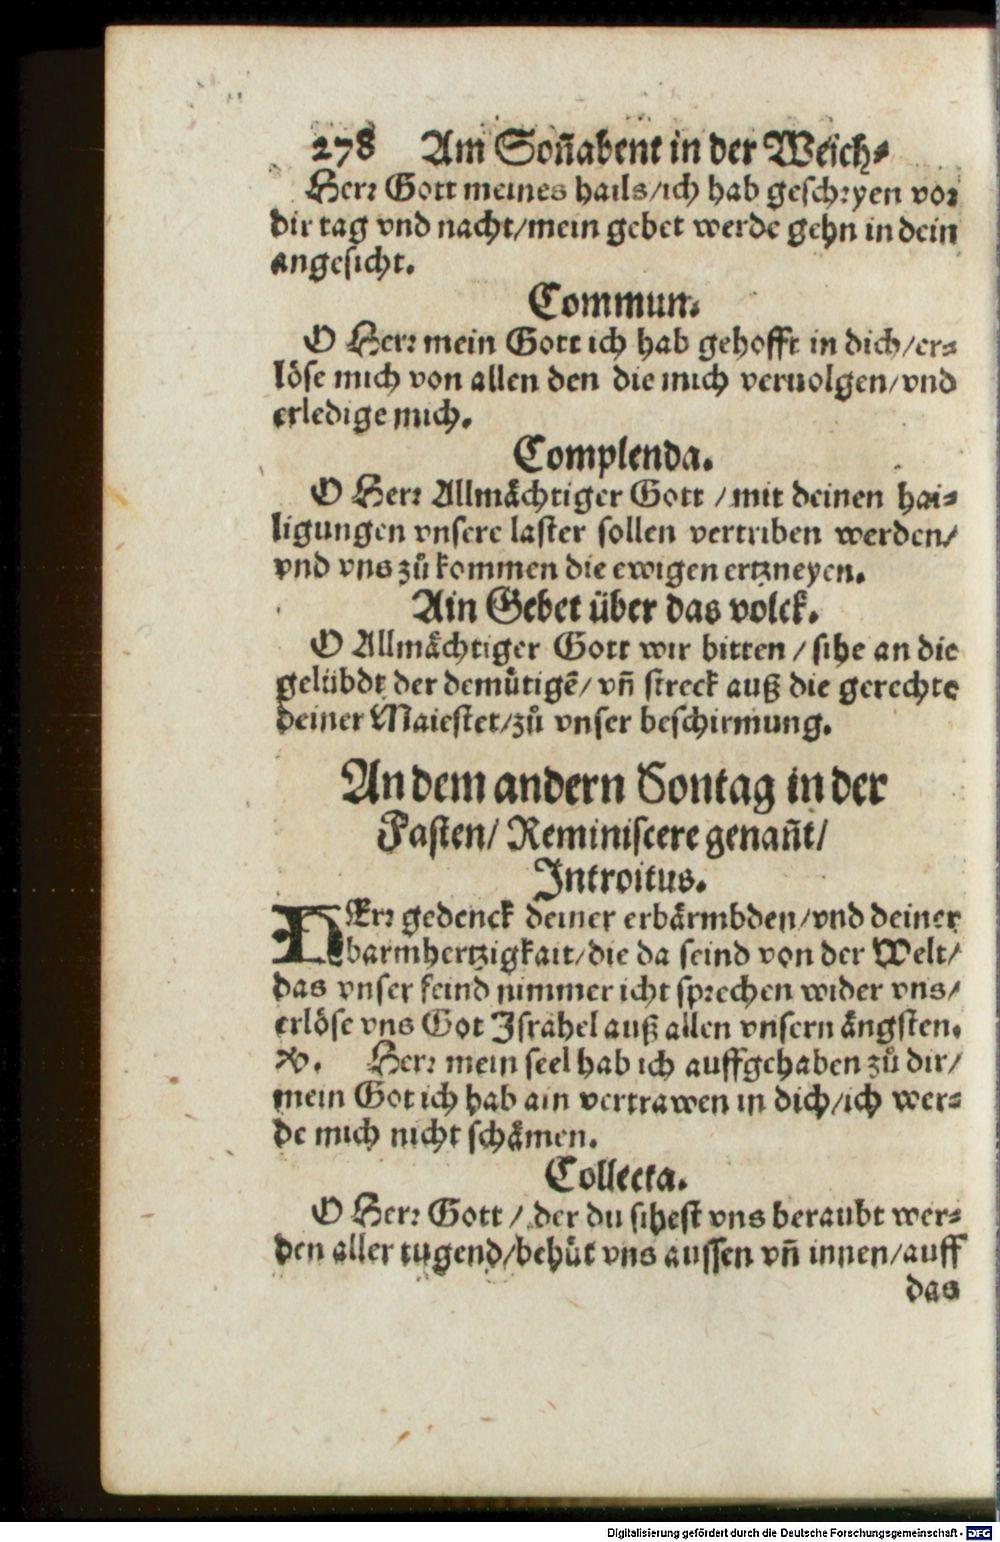 278 Am Soñabent in der Weich⸗
Herꝛ Gott meines hails/ich hab geschꝛyen voꝛ
dir tag vnd nacht/mein gebet werde gehn in dein
angesicht.
Commun.
O Herꝛ mein Gott ich hab gehofft in dich/er⸗
löse mich von allen den die mich veruolgen/vnd
erledige mich.
Complenda.
O Herꝛ Allmächtiger Gott /mit deinen hai⸗
ligungen vnsere laster sollen vertriben werden/
vnd vns zů kommen die ewigen ertzneyen.
Ain Gebet über das volck.
O Allmächtiger Gott wir bitten / sihe an die
gelübdt der demůtigẽ/ vñ streck auß die gerechte
deiner Maiestet/zů vnser beschirmung.
An dem andern Sontag in der
Fasten/ Reminiscere genañt/
Introitus.
HErꝛ gedenck deiner erbärmbden/vnd deiner
barmhertzigkait/die da seind von der Welt/
das vnser feind nimmer icht spꝛechen wider vns/
erlöse vns Got Israhel auß allen vnsern ängsten.
℣. Herꝛ mein seel hab ich auffgehaben zů dir/
mein Got ich hab ain vertrawen in dich/ich wer⸗
de mich nicht schämen.
Collecta.
O Herꝛ Gott / der du sihest vns beraubt wer⸗
den aller tugend/behůt vns aussen vñ innen/auff
das
Digitalisierung gefördert durch die Deutsche Forschungsgemeinschaft - DFG